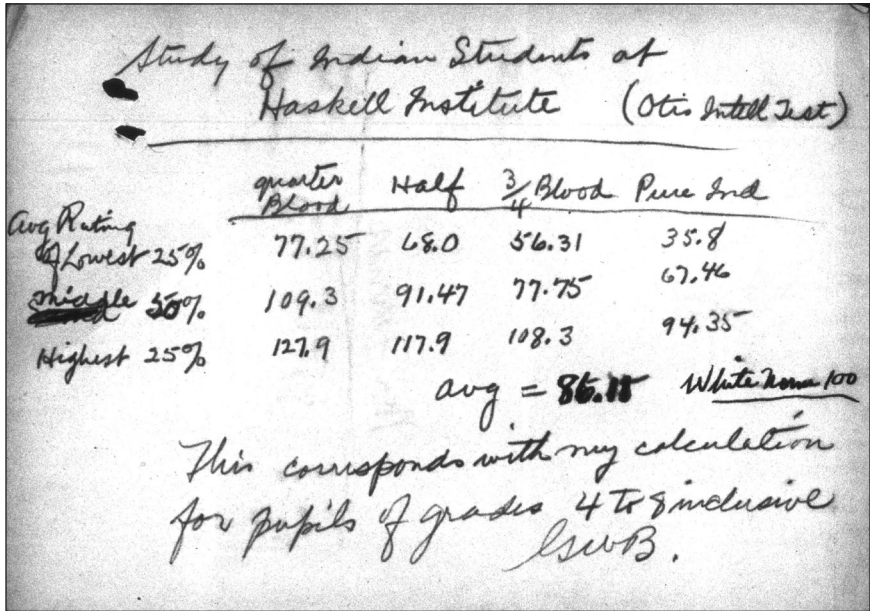 Study of Indian Students at
Haskell Institute (Otis Intell Test)
quarter Blood Half 3/4 Blood Pure Ind
Avg Rating
of Lowest 25% 77.25 68.0 56.31 35.8
middle 50% 109.3 91.47 77.75 67.46
Highest 25% 127.9 117.9 108.3 94.35
avg = 86.15 White Norm 100
This corresponds with my calculation
for pupils of grades 4 to 8 inclusive